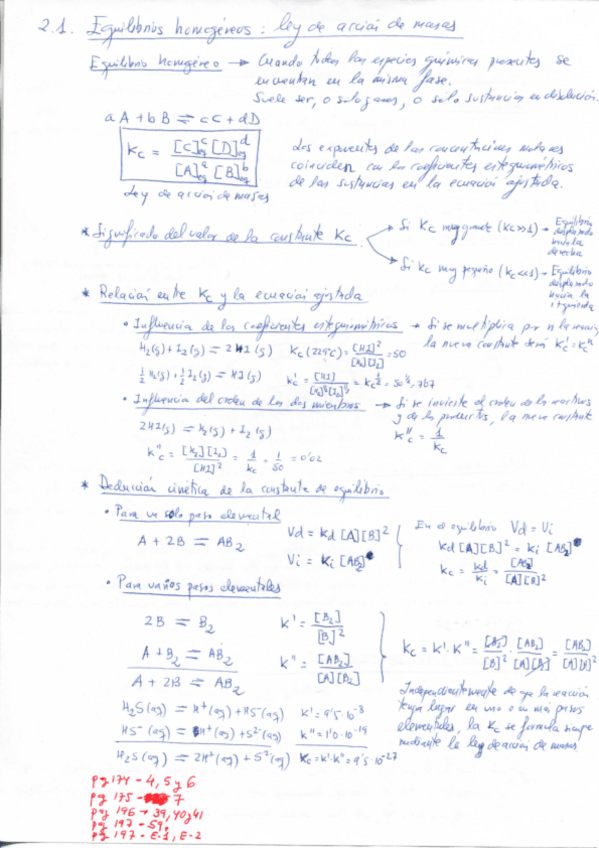 2.1. Equilibrios homogéneos: ley de acción de masas
Equilibrio homogéneo → Cuando todas las especies químicas presentes se
encuentran en la misma fase.
Suele ser, o solo gases, o sólo sustancias en disolución.
aA + bB ⇌ cC + dD
Kc = [C]^c eq [D]^d eq / [A]^a eq [B]^b eq
Ley de acción de masas
Los exponentes de las concentraciones molares
coinciden con los coeficientes estequiométricos
de las sustancias en la ecuación ajustada.
* Significado del valor de la constante Kc
Si Kc muy grande (Kc>>1) → Equilibrio desplazado hacia la derecha
Si Kc muy pequeño (Kc<<1) → Equilibrio desplazado hacia la izquierda
* Relación entre Kc y la ecuación ajustada
• Influencia de los coeficientes estequiométricos → Si se multiplica por n la
la nueva constante será Kc' = Kc^n
H2(g) + I2(g) ⇌ 2HI(g) Kc = [HI]^2 / [H2][I2] = 50
1/2 H2(g) + 1/2 I2(g) ⇌ HI(g) Kc' = [HI] / [H2]^1/2 [I2]^1/2 = Kc^1/2 = 50^1/2 =
• Influencia del orden de los dos miembros → Si se invierte el orden de los reactivos
y de los productos, la nueva constante
Kc'' = 1/Kc
2HI(g) ⇌ H2(g) + I2(g)
Kc'' = [H2][I2] / [HI]^2 = 1/Kc = 1/50 = 0'02
* Deducción cinética de la constante de equilibrio
• Para un solo paso elemental
A + 2B ⇌ AB2
Vd = Kd [A][B]^2
Vi = Ki [AB2]
En el equilibrio Vd = Vi
Kd [A][B]^2 = Ki [AB2]
Kc = Kd/Ki = [AB2] / [A][B]^2
• Para varios pasos elementales
2B ⇌ B2 K' = [B2] / [B]^2
A + B2 ⇌ AB2 K'' = [AB2] / [A][B2]
A + 2B ⇌ AB2
Kc = K'·K'' = [B2]/[B]^2 · [AB2]/[A][B2] = [AB2]/[A][B]^2
Independientemente de que la reacción
tenga lugar en uno o en más pasos
elementales, la Kc se formula siempre
mediante la ley de acción de masas
H2S(aq) ⇌ H+(aq) + HS-(aq) K' = 9'5·10^-8
HS-(aq) ⇌ H+(aq) + S2-(aq) K'' = 1'0·10^-19
H2S(aq) ⇌ 2H+(aq) + S2-(aq) Kc = K'·K'' = 9'5·10^-27
pg 174 - 4, 5 y 6
pg 175 - 7
pg 196 - 39, 40 y 41
pg 197 - 59,
pg 197 - E-1, E-2